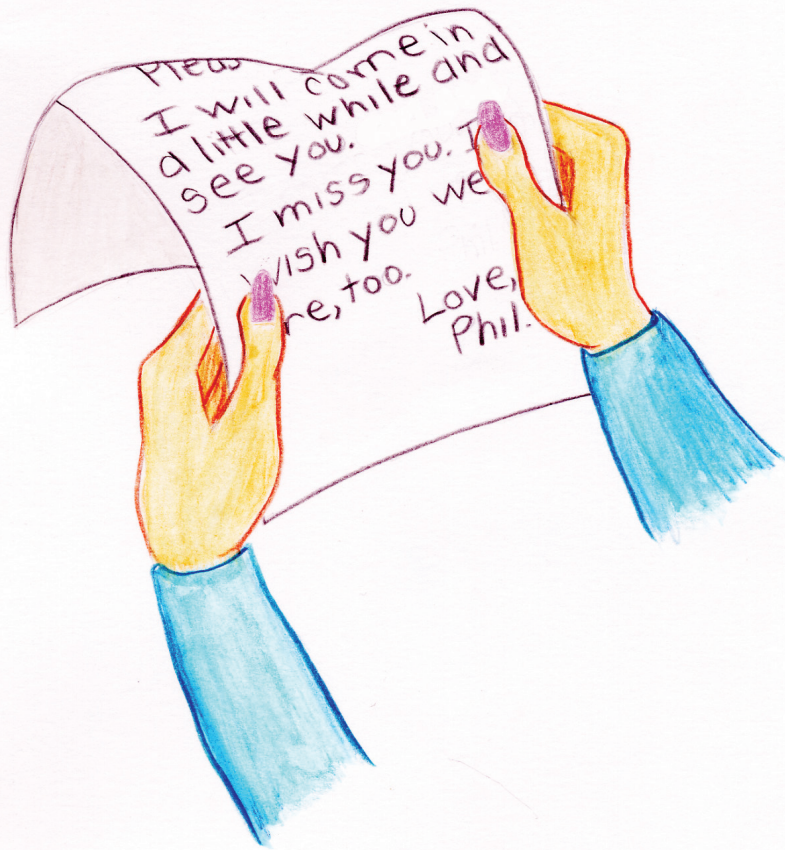 Pleas
I will come in
a little while and
see you.
I miss you. I
wish you we
re, too.
Love,
Phil.